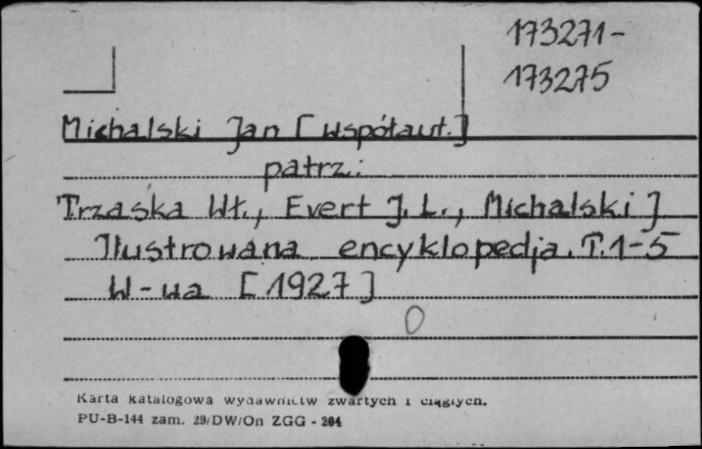 173271-
173275
Michalski Jan [współaut.]
patrz:
Trzaska Wł., Evert J. L., Michalski J.
Ilustrowana encyklopedja. T. 1-5
W-wa [1927]
0
Karta katalogowa wydawnictw zwartych i ciągłych.
PU-B-144 zam. 29/DW/On ZGG - 204